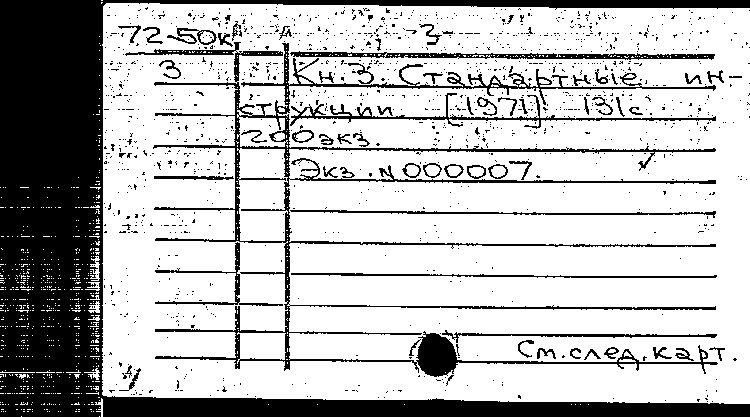 72-50к -3-
3 Кн.3. Стандартные ин-
струкции. [1971]. 131с.
200экз.
Экз. N 000007.
См.след.карт.